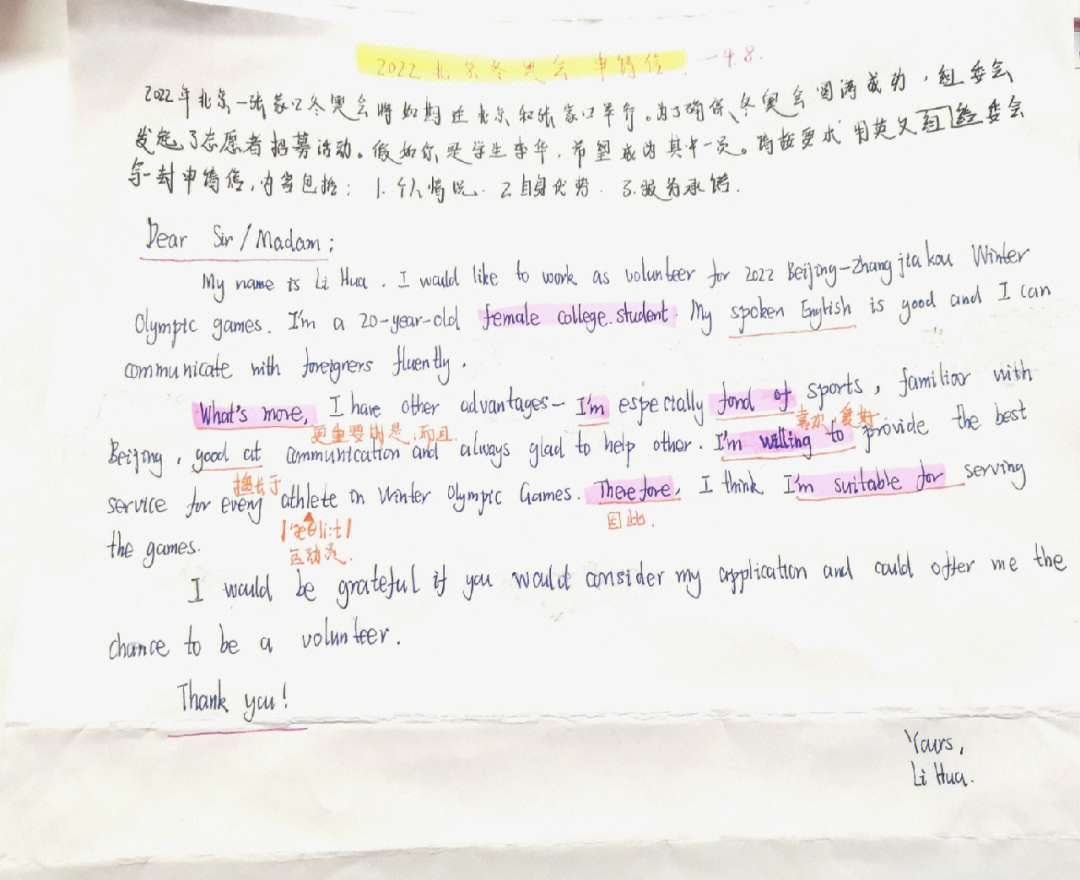 2022北京冬奥会申请信.—4.8.
2022年北京—张家口冬奥会将如期在北京和张家口举行。为了确保冬奥会圆满成功,组委会
发起了志愿者招募活动。假如你是学生李华,希望成为其中一员。请按要求用英文组委会
写一封申请信,内容包括: 1.个人情况. 2.自身优势. 3.服务承诺.
Dear Sir/Madam:
My name is Li Hua. I would like to work as volunteer for 2022 Beijing-Zhangjiakou Winter
Olympic games. I'm a 20-year-old female college student. My spoken English is good and I can
communicate with foreigners fluently.
What's more, I have other advantages- I'm especially fond of sports, familiar with
更重要的是,而且. 喜欢,爱好
Beijing, good at communication and always glad to help other. I'm willing to provide the best
擅长于
service for every athlete in Winter Olympic Games. Therefore, I think I'm suitable for serving
/'æθli:t/ 因此.
运动员.
the games.
I would be grateful if you would consider my application and could offer me the
chance to be a volunteer.
Thank you!
Yours,
Li Hua.